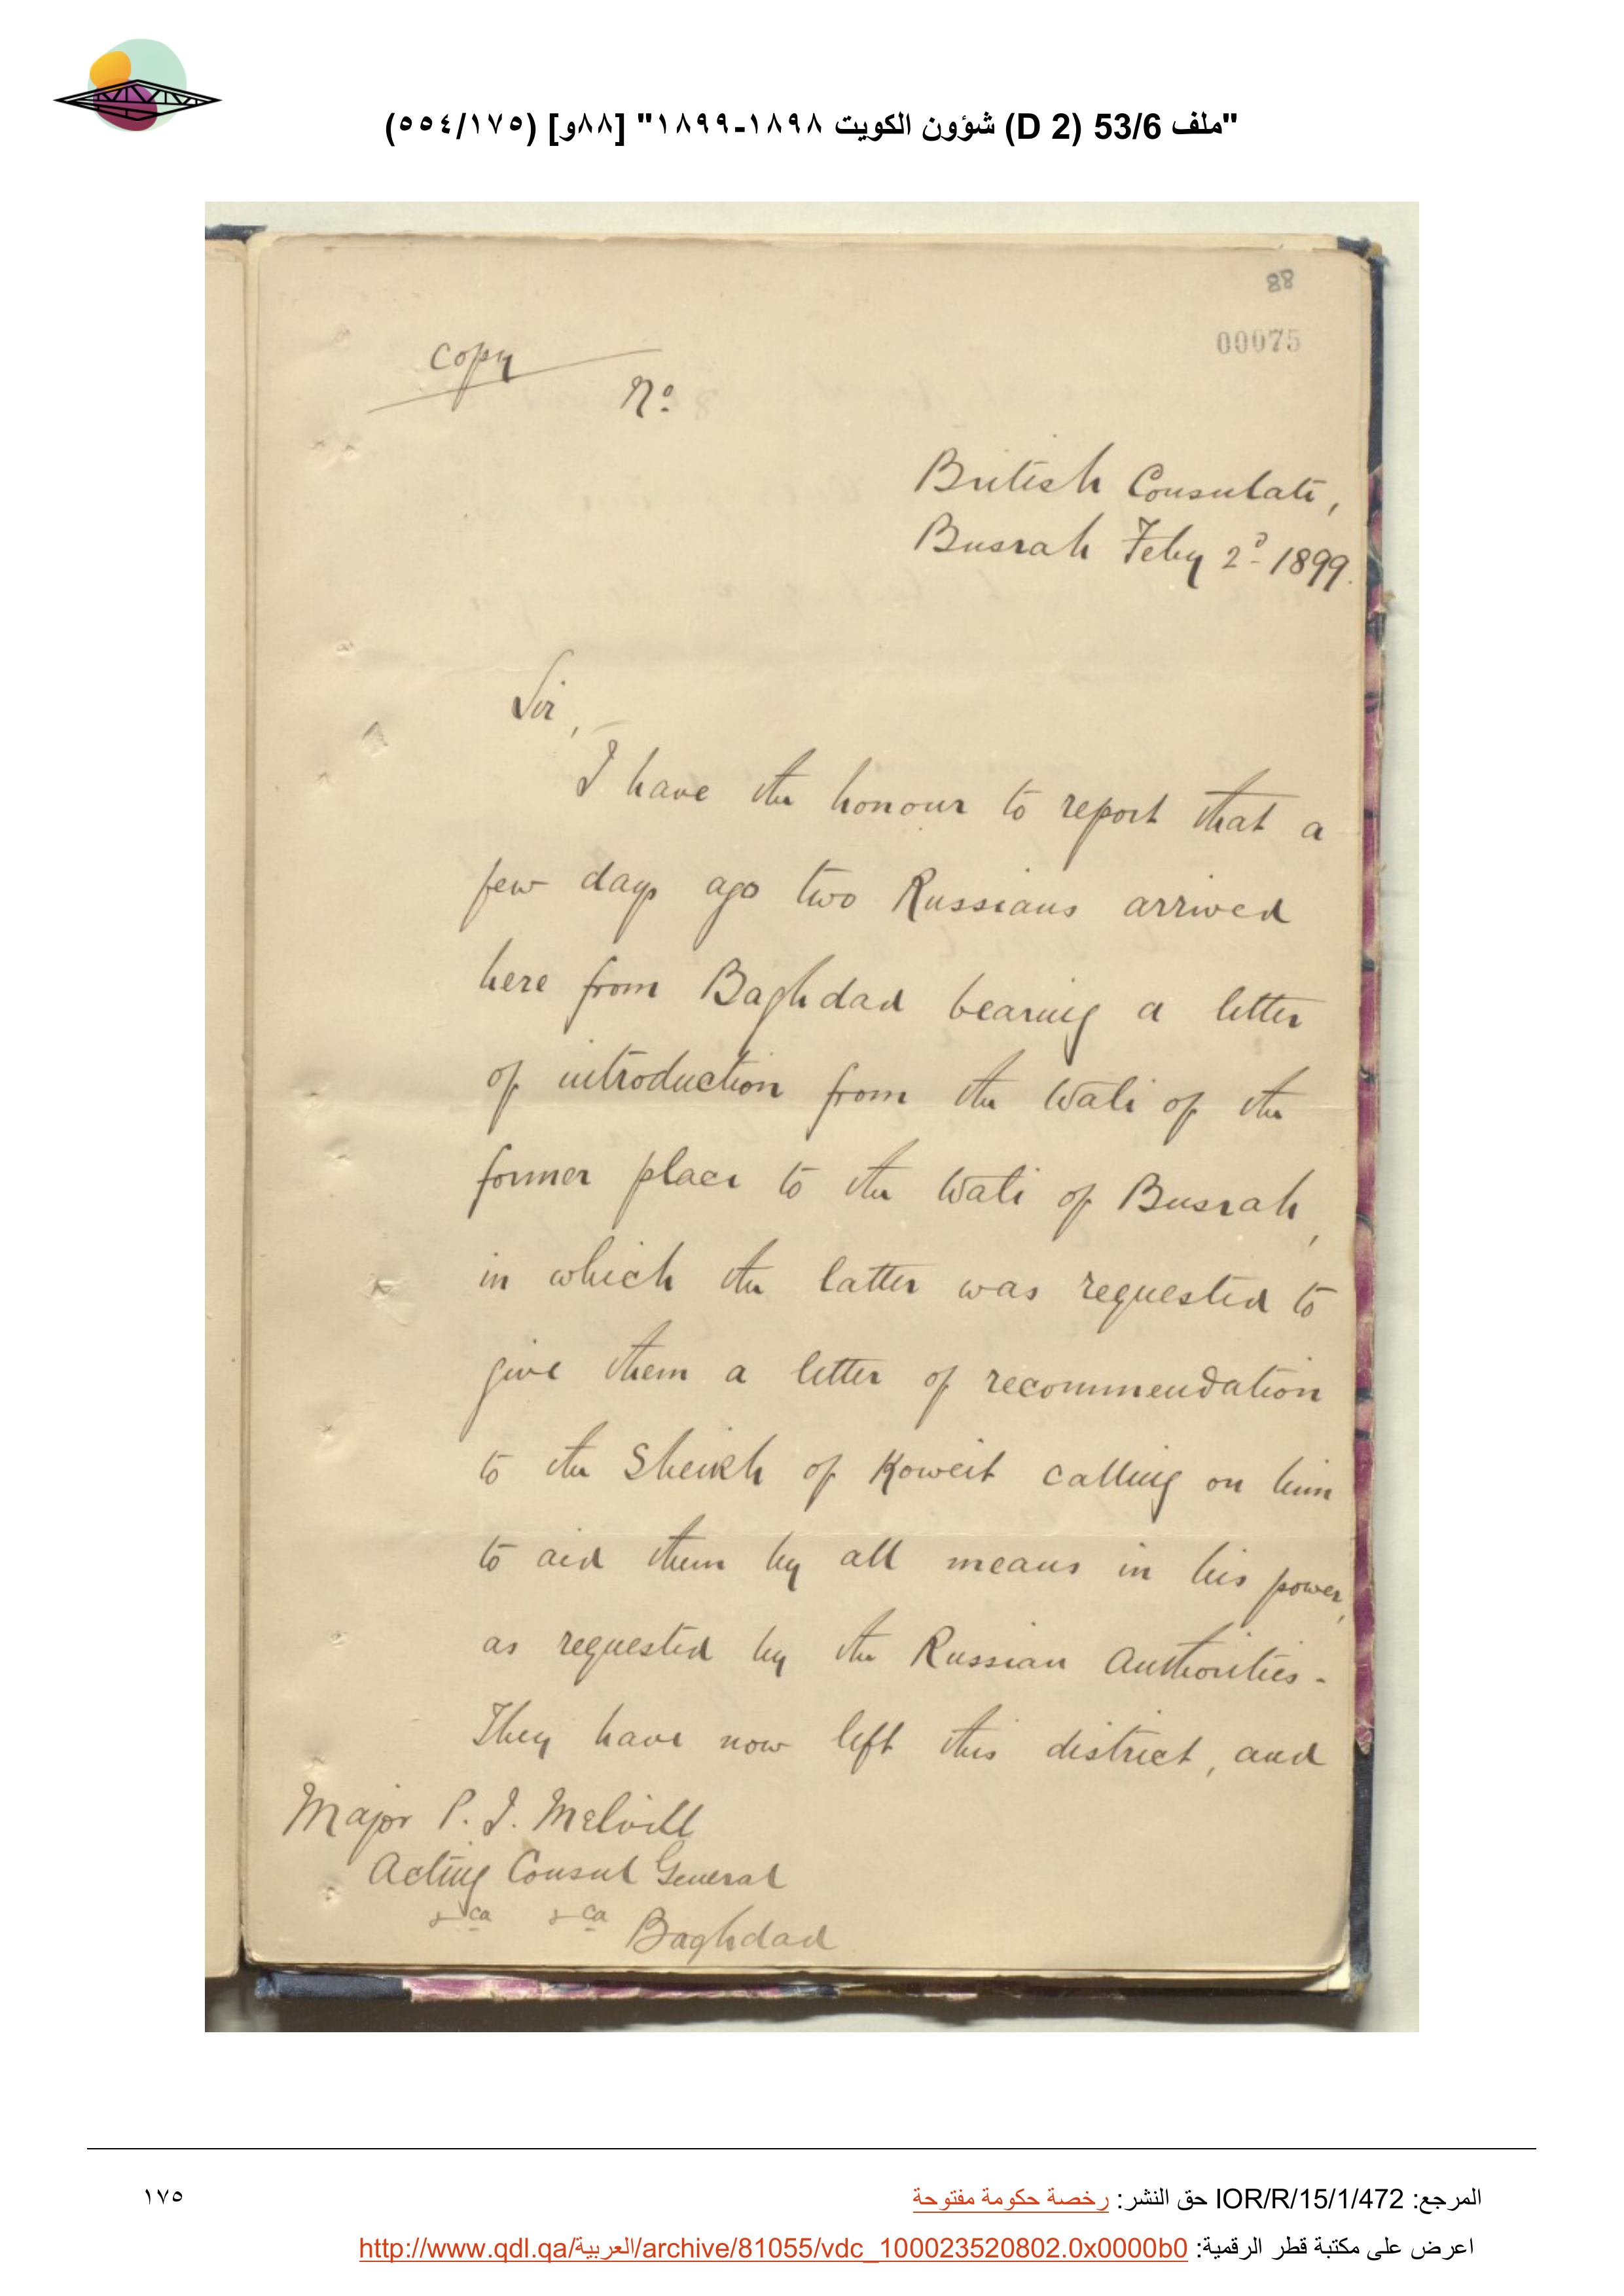 "ملف 53/6 (D 2) شؤون الكويت ١٨٩٨-١٨٩٩" [٨٨و] (٥٥٤/١٧٥)
88
00075
Copy
No.
British Consulate,
Busrah Feby 2d 1899.
Sir,
I have the honour to report that a
few days ago two Russians arrived
here from Baghdad bearing a letter
of introduction from the Wali of the
former place to the Wali of Busrah,
in which the latter was requested to
give them a letter of recommendation
to the Sheikh of Koweit calling on him
to aid them by all means in his power,
as requested by the Russian Authorities.
They have now left this district, and
Major P. J. Melvill
Acting Consul General
&ca &ca Baghdad
المرجع: IOR/R/15/1/472 حق النشر: رخصة حكومة مفتوحة
١٧٥
اعرض على مكتبة قطر الرقمية: http://www.qdl.qa/العربية/archive/81055/vdc_100023520802.0x0000b0